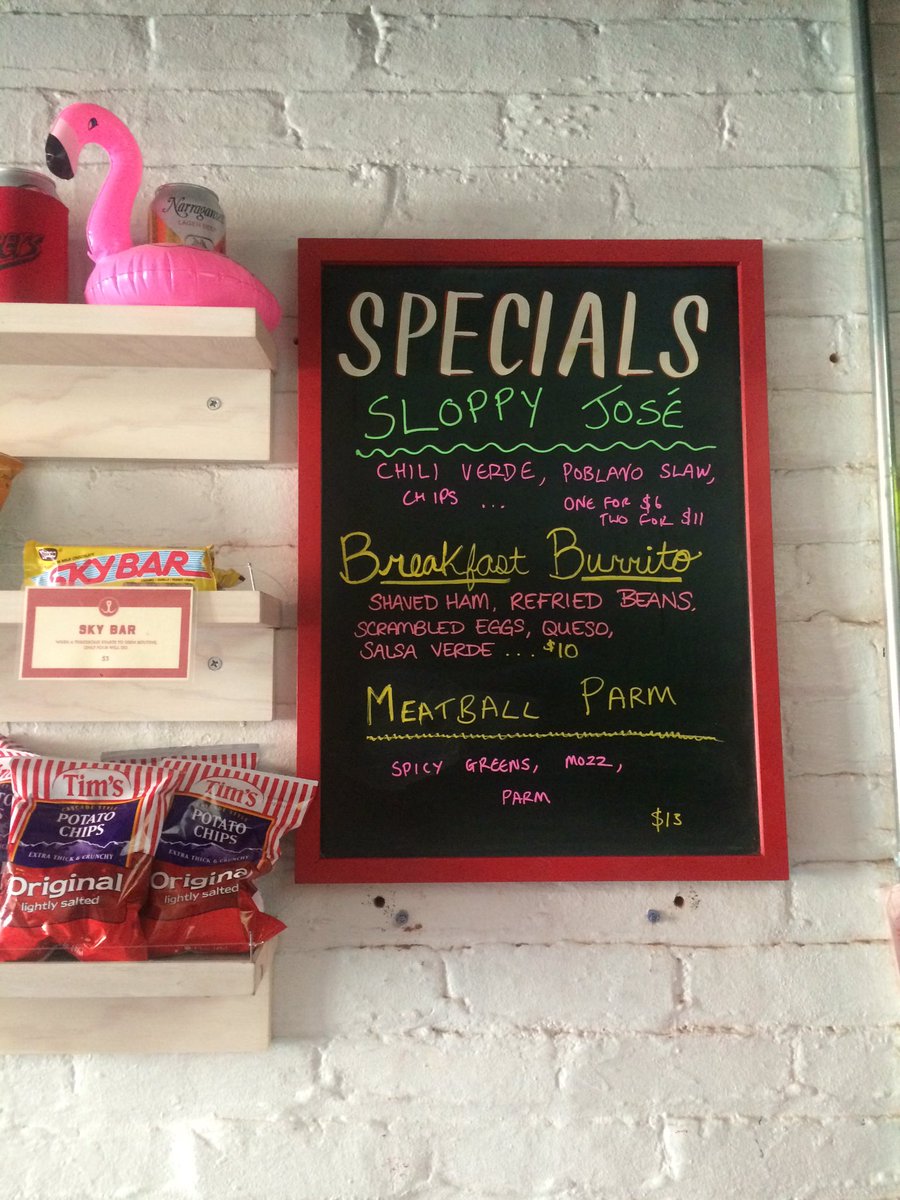 Narragansett
LAGER BEER
SPECIALS
SLOPPY JOSÉ
CHILI VERDE, POBLANO SLAW,
CHIPS ... ONE FOR $6
TWO FOR $11
Breakfast Burrito
SHAVED HAM, REFRIED BEANS,
SCRAMBLED EGGS, QUESO,
SALSA VERDE .... $10
MEATBALL PARM
SPICY GREENS, MOZZ,
PARM
$13
SKY BAR
SKY BAR
ONLY YOUR WILL DO.
$3
Tim's
CASCADE STYLE
POTATO
CHIPS
EXTRA THICK & CRUNCHY
Original
lightly salted
Tim's
POTATO
CHIPS
EXTRA THICK & CRUNCHY
Original
lightly salted